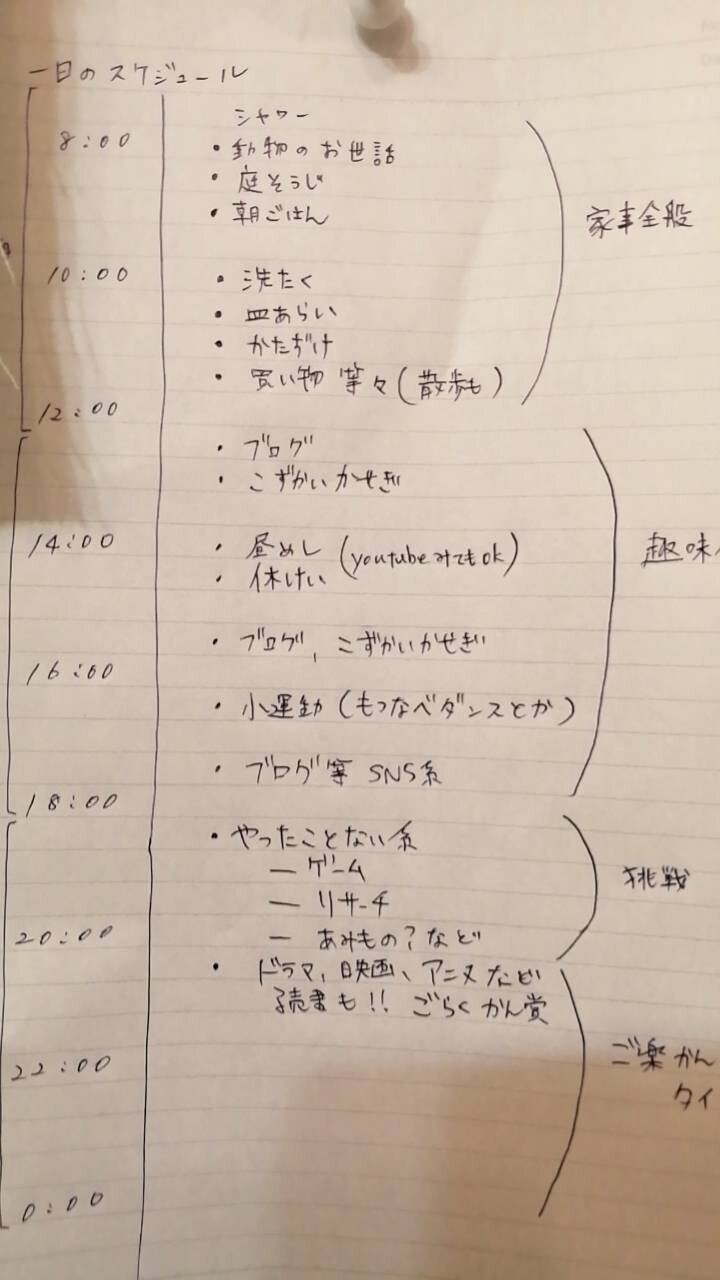 一日のスケジュール
シャワー
8:00
・動物のお世話
・庭そうじ
・朝ごはん
家事全般
10:00
・洗たく
・皿あらい
・かたづけ
・買い物 等々(散歩も)
12:00
・ブログ
・こずかいかせぎ
14:00
・昼めし(youtubeみてもok)
・休けい
趣味
・ブログ、こずかいかせぎ
16:00
・小運動(もつなべダンスとか)
・ブログ等 SNS系
18:00
・やったことない系
― ゲーム
― リサーチ
― あみもの?など
挑戦
20:00
・ドラマ、映画、アニメなど
読書も!! ごらくかん賞
22:00
ご楽かん
タイ
0:00